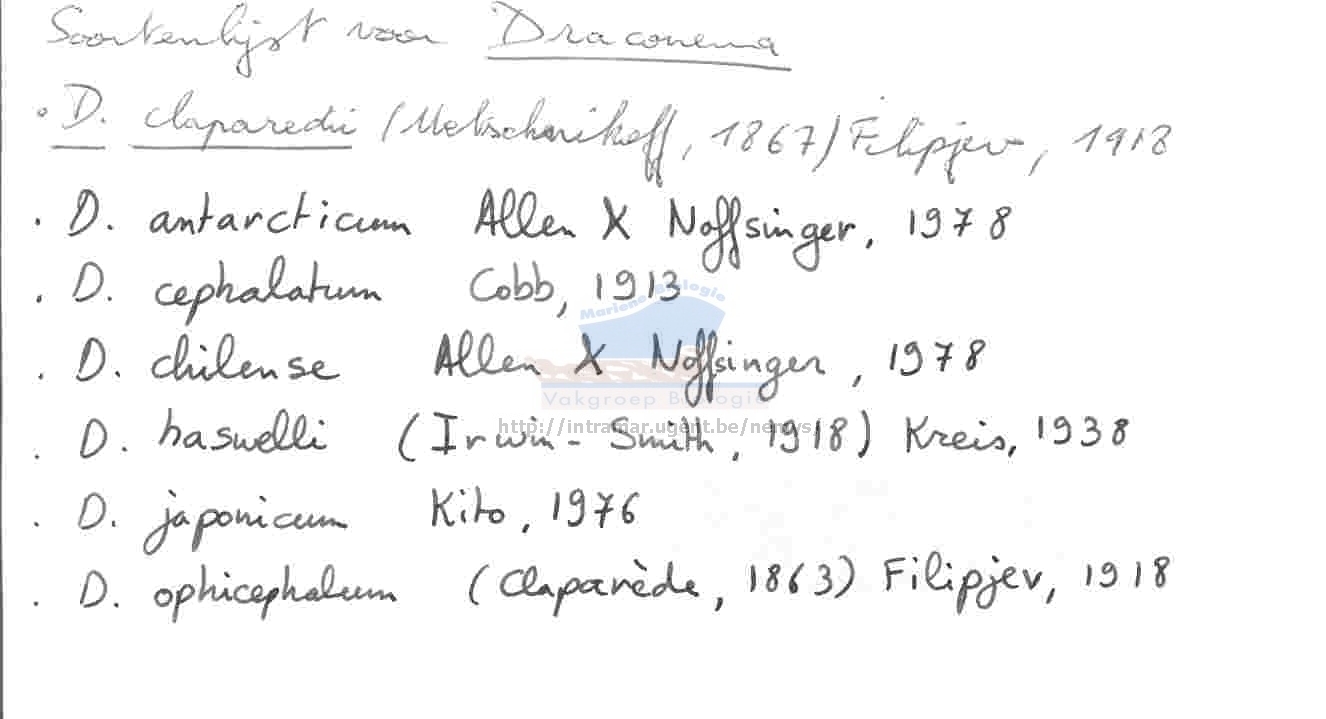 Soortenlijst voor Draconema
• D. claparedii (Metschnikoff, 1867) Filipjev, 1918
. D. antarcticum Allen & Noffsinger, 1978
. D. cephalatum Cobb, 1913
. D. chilense Allen & Noffsinger, 1978
. D. haswelli (Irwin-Smith, 1918) Kreis, 1938
. D. japonicum Kito, 1976
. D. ophicephalum (Claparède, 1863) Filipjev, 1918
Mariene Biologie
Vakgroep Biologie
http://intramar.ugent.be/nemys